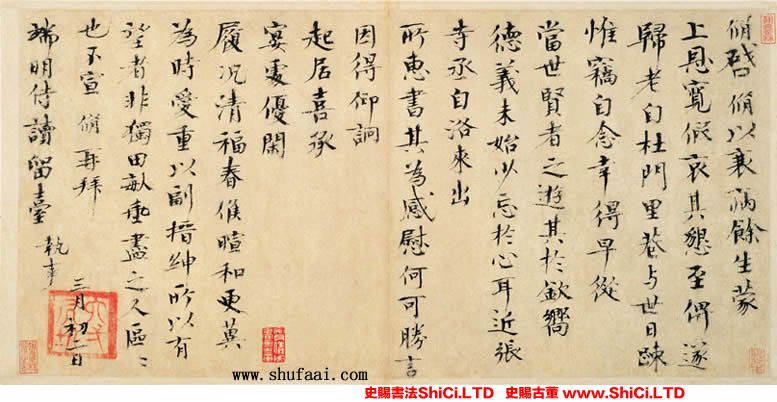 脩啓脩以衰病餘生蒙
上恩寬假哀其懇至俾遂
歸老自杜門里巷与世日踈
惟竊自念幸得早從
當世賢者之遊其於欽嚮
德義未始少忘於心耳近張
寺丞自洛來出
所惠書其為感慰何可勝言
因得仰詢
起居喜承
宴處優閑
履況清福春候暄和更冀
為時愛重以副搢紳所以有
望者非獨田畝垂盡之人區々
也不宣 脩再拜
端明侍讀留臺 執事
三月初二日
www.shufaai.com
史賜書法ShiCi.LTD 史賜古董 www.ShiCi.LTD